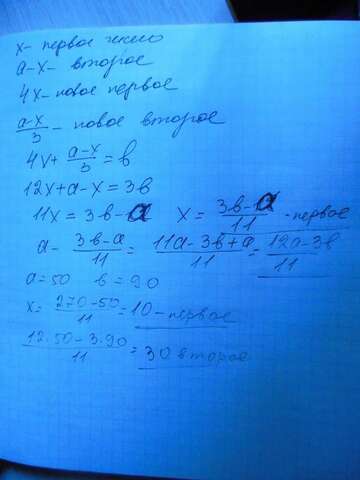 x - первое число
a-x - второе
4x - новое первое
a-x/3 - новое второе
4x + a-x/3 = b
12x+a-x = 3b
11x = 3b-a x = 3b-a/11 - первое
a - 3b-a/11 = 11a-3b+a/11 = 12a-3b/11
a=50 b=90
x = 270-50/11 = 10 - первое
12·50-3·90/11 = 30 второе